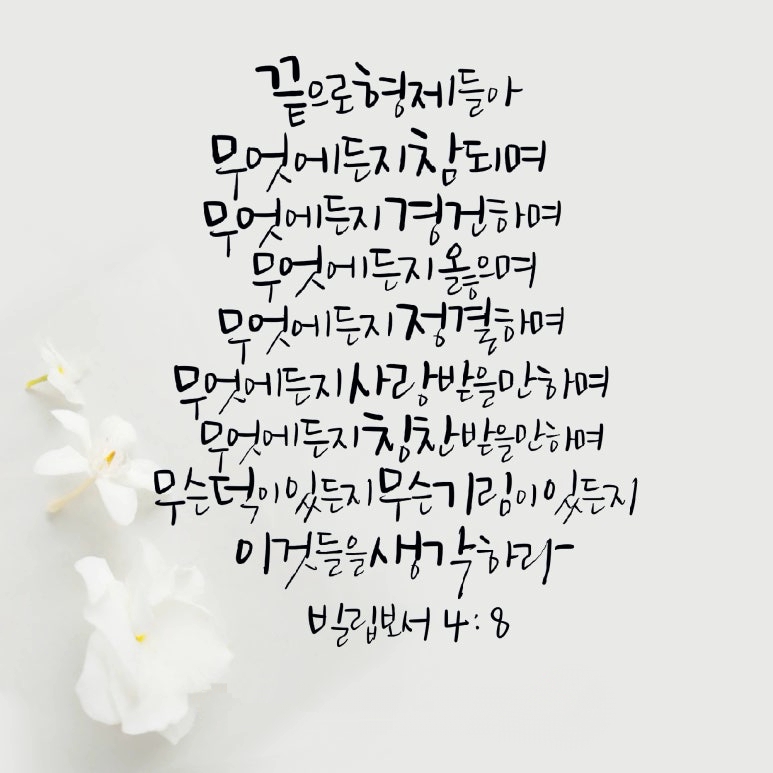 끝으로 형제들아
무엇에든지 참되며
무엇에든지 경건하며
무엇에든지 옳으며
무엇에든지 정결하며
무엇에든지 사랑받을만하며
무엇에든지 칭찬받을만하며
무슨덕이있든지 무슨기림이있든지
이것들을 생각하라
빌립보서 4:8